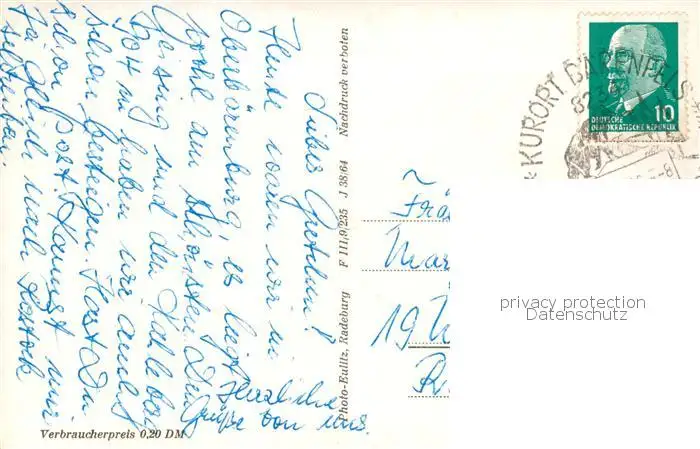 Liebes Gretchen!
Heute waren wir in
Oberbärenburg, es liegt
wohl am schönsten. Den
Geising und den Kahleberg
haben wir auch
schon bestiegen. Hast Du
schon Post? Kannst mir
ja gleich nach Rostock
schreiben.
Herzliche
Grüße von uns.
Verbraucherpreis 0,20 DM
Photo-Eulitz, Radeburg F 111/9/235 J 38/64 Nachdruck verboten
KURORT BÄRENFELS
DEUTSCHE
DEMOKRATISCHE REPUBLIK
10
19
privacy protection
Datenschutz